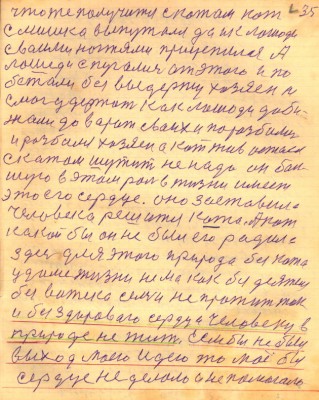 что то получится с котом кот 35
с мешка выпутался да и к лошаде
своими ногтями прицепился А
лошади спугались от этого и по
без выдержу хозяен и
смог удержат Как лошади доби
жали до варот своих и поразбили
и розбили хозяена кот жив остался
с котом шутит не надо он бол
шую в этом рол в жизни имеет
это его сердце. оно заставила
человека решится кота. А кот
какой бы он не был его радила
здес для этого природа без кота
у дзиме жизни нема как без детей
без батька семи не прожит так
и без здорового сердца человеку в
природе не жит. Если бы не был
выход моего идею это моё бы
сердце не делало и не помогало